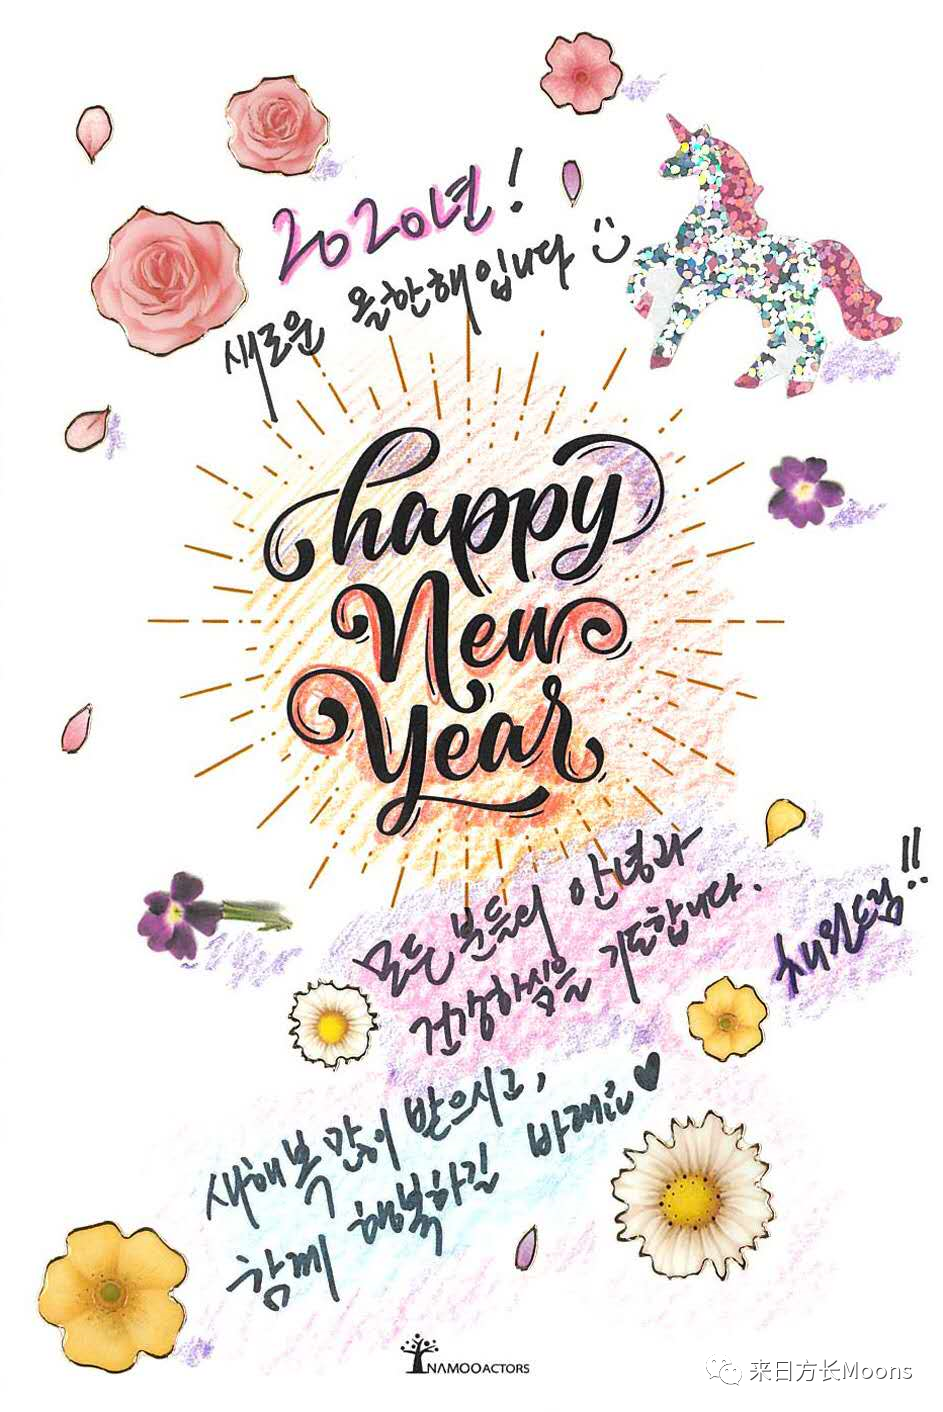 2020년!
새로운 올한해입니다
happy
New
Year
모든 분들의 안녕과
건강하심을 기도합니다.
새해복 많이 받으시고,
함께 행복하길 바래요♥
드림!!
NAMOOACTORS
来日方长Moons